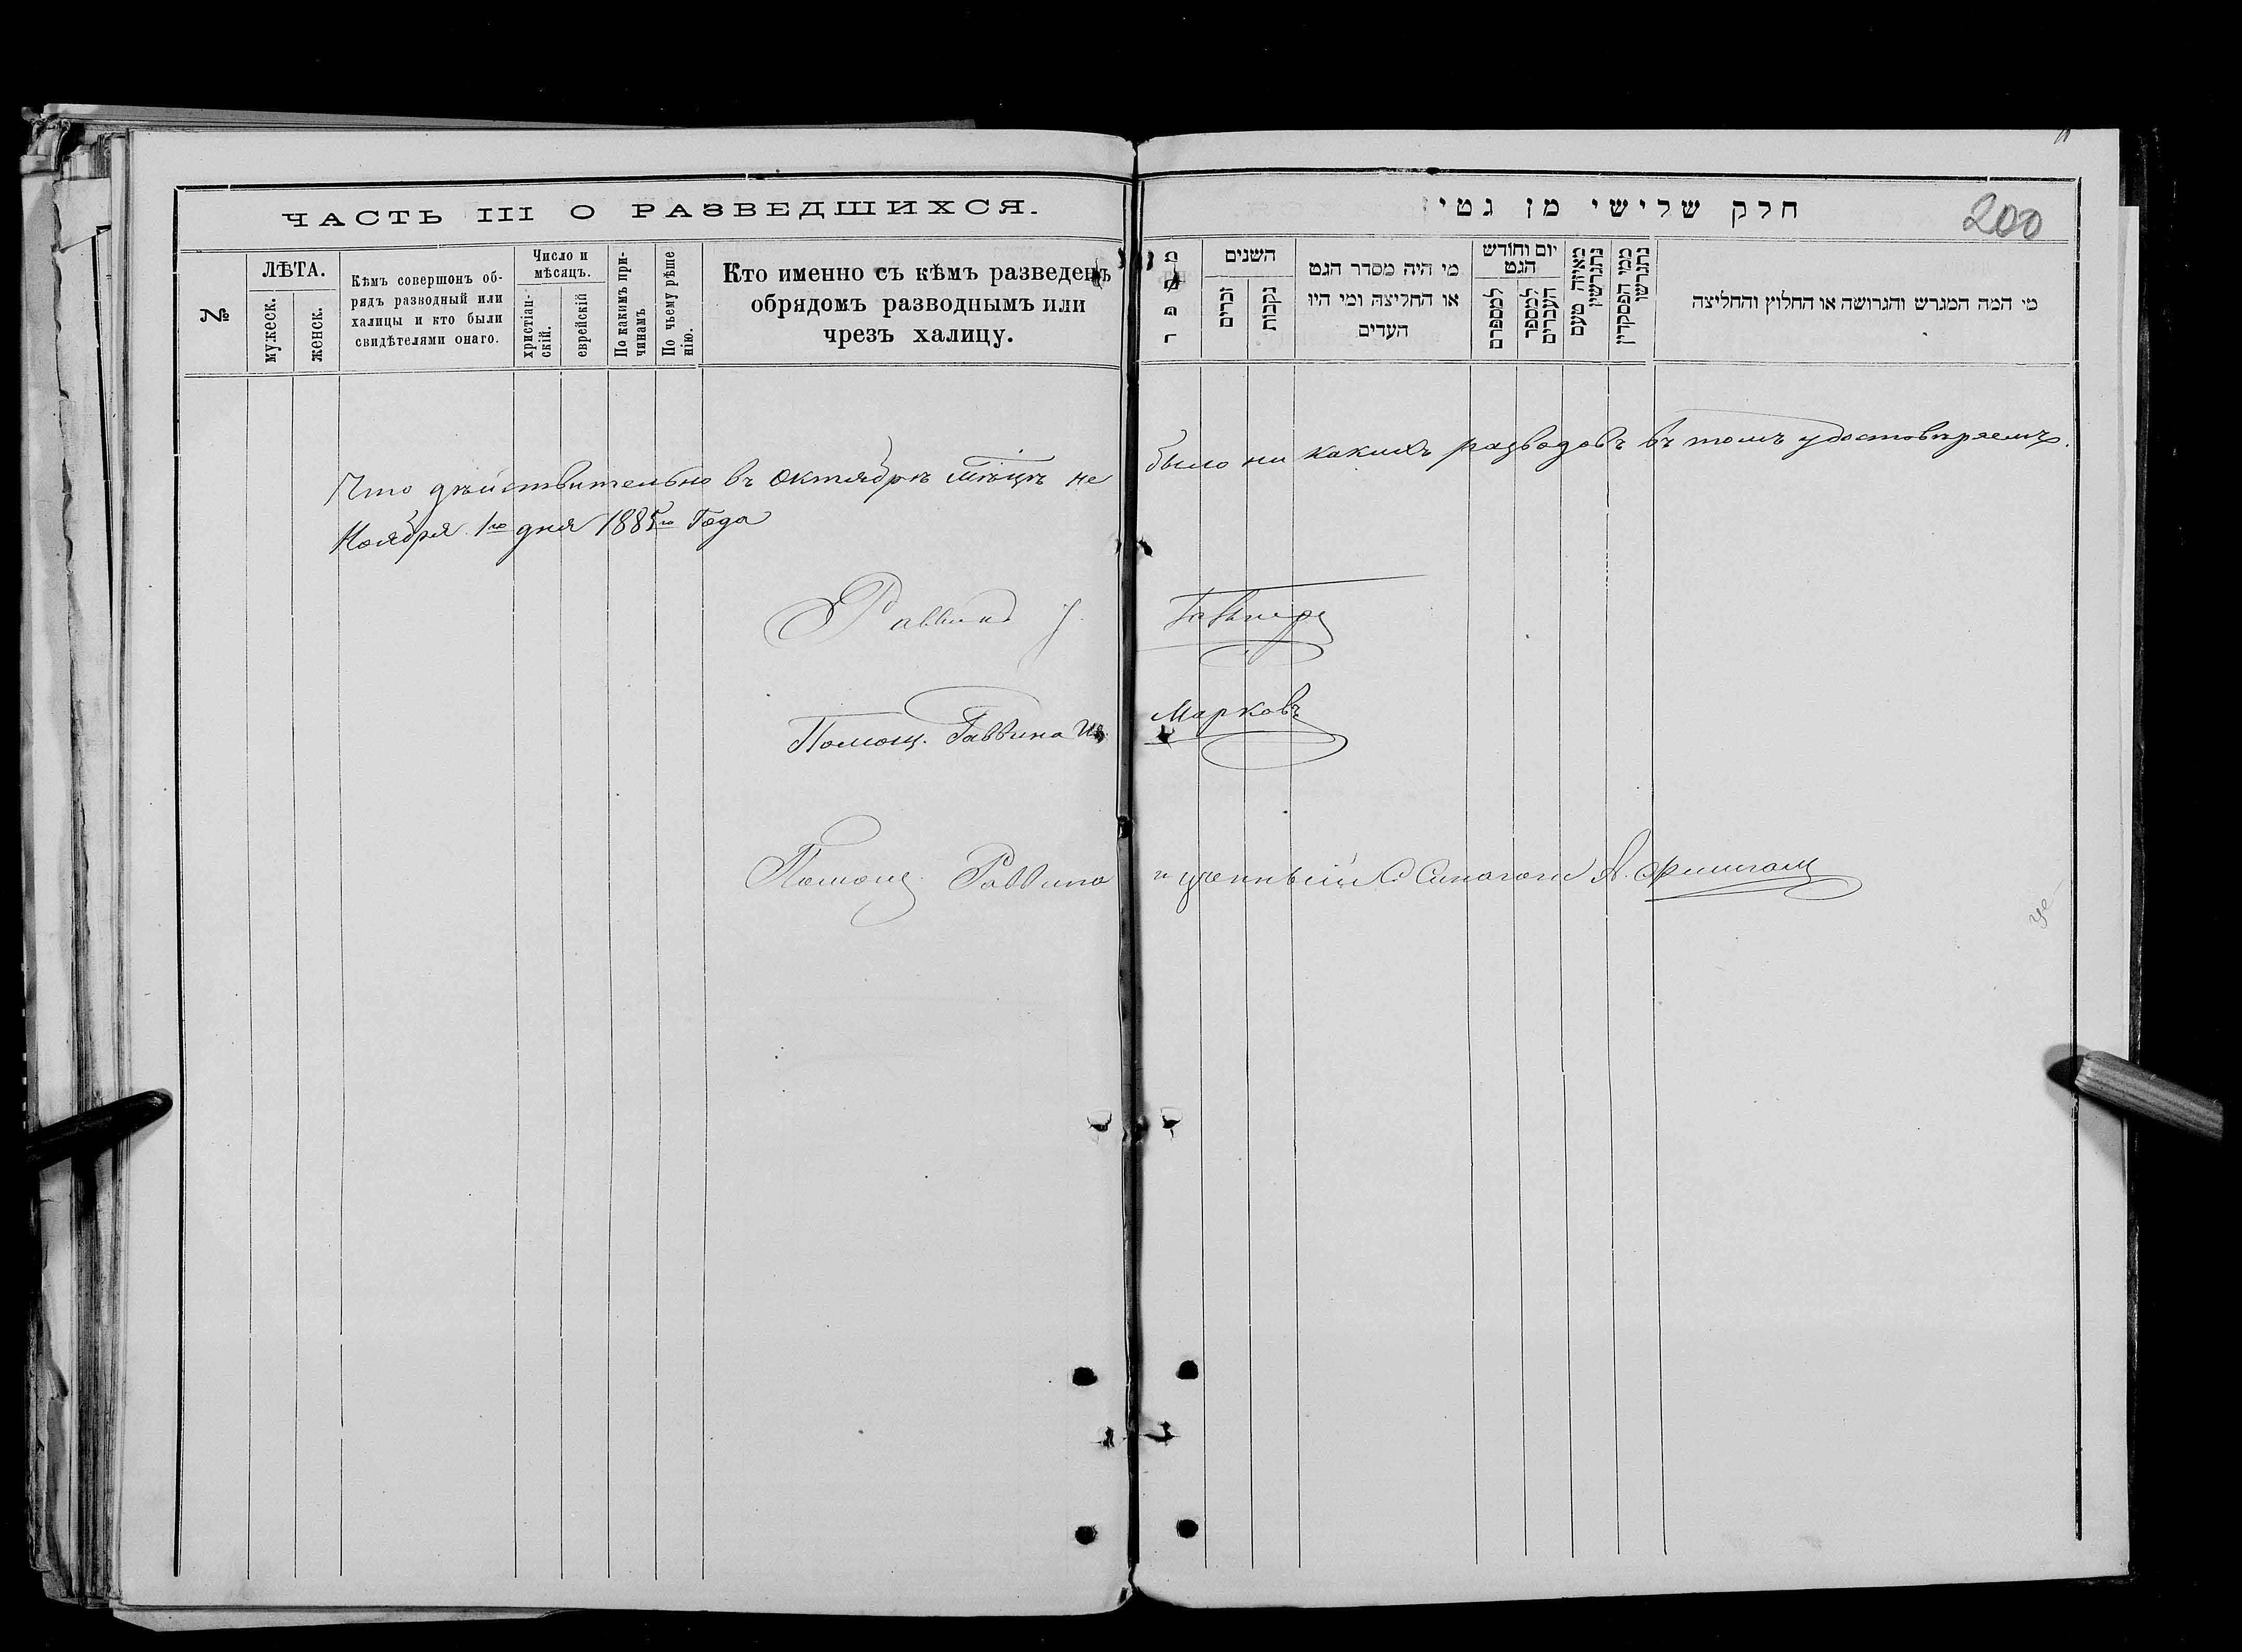 ЧАСТЬ III О РАЗВЕДШИХСЯ.
№
ЛѢТА.
мужеск.
женск.
Кѣмъ совершонъ об-
рядъ разводный или
халицы и кто были
свидѣтелями онаго.
Число и
мѣсяцъ.
христіан-
скій.
еврейскій
По какимъ при-
чинамъ
По чьему рѣше
нію.
Кто именно съ кѣмъ разведенъ
обрядомъ разводнымъ или
чрезъ халицу.
חלק שלישי מן גטי
200
מספר
השנים
זכרים
נקבות
מי היה מסדר הגט
או החליצה ומי היו
העדים
יום וחודש
הגט
למספרם
למספר
העברים
מאיזה טעם
נתגרשין
ממי הפסקדין
נתגרשו
מי המה המגרש והגרושה או החלוץ והחליצה
Что дѣйствительно въ Октябрѣ мѣцѣ не было ни какихъ разводовъ въ томъ удостовѣряемъ.
Ноября 1го дня 1885го Года
Раввинъ
Помощ. Раввина Марковъ
Помощ. Раввина и ученный Синагоги А.